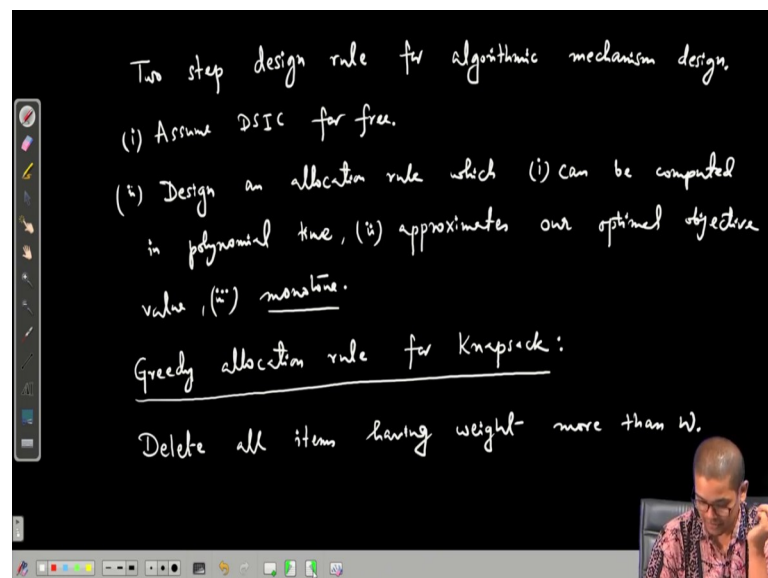 Two step design rule for algorithmic mechanism design.
(i) Assume DSIC for free.
(ii) Design an allocation rule which (i) can be computed
in polynomial time, (ii) approximates our optimal objective
value, (iii) monotone.
Greedy allocation rule for Knapsack:
Delete all items having weight more than W.